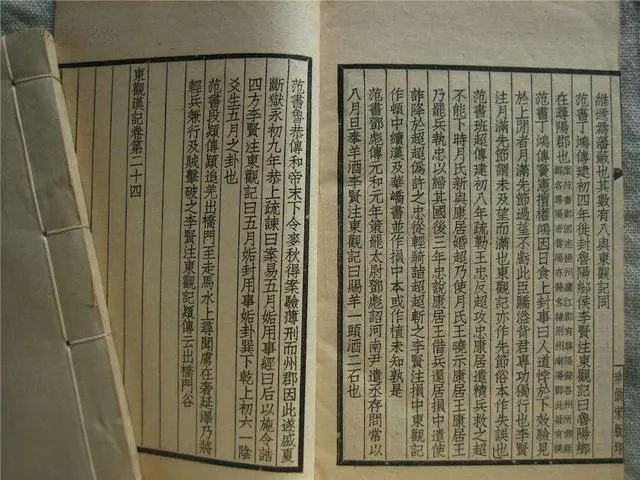 維漢爲藩蔽也其數有八與東觀記同
范書丁鴻傳建初四年徙封魯陽鄉侯李賢注東觀記曰魯陽鄉
在尋陽郡也
范書丁鴻傳竇憲擅權鴻因日食上封事曰人道悖於下效驗見
於上閒者月滿先節過望不虧此臣驕溢背君專功獨行也李賢
注月滿先節謂未及望而滿也東觀記亦作先節俗本作失誤也
范書班超傳建初八年疏勒王忠反超攻忠康居遣精兵救之超
不能下時月氏新與康居婚超乃使月氏王曉示康居王康居王
乃罷兵執忠以歸其國後三年忠說康居王借兵還居損中遣使
詐降於超超偽許之忠從輕騎詣超超斬之李賢注損中東觀記
作頓中續漢及華嶠書並作損中本或作植未知孰是
范書鄧彪傳元和元年策罷太尉鄧彪詔河南尹遣丞存問常以
八月旦奉羊酒李賢注東觀記曰賜羊一頭酒二石也
范書魯恭傳和帝末下令麥秋得案驗薄刑而州郡因此遂盛夏
斷獄永初九年恭上疏諫曰案易五月姤用事經曰后以施令誥
四方李賢注東觀記曰五月姤封用事姤卦巽下乾上初六一陰
爻生五月之卦也
范書段熲傳熲追羌出橋門至走馬水上尋聞虜在奢延澤乃將
輕兵兼行及賊擊破之李賢注東觀記熲傳云出橋門谷
東觀漢記卷第二十四